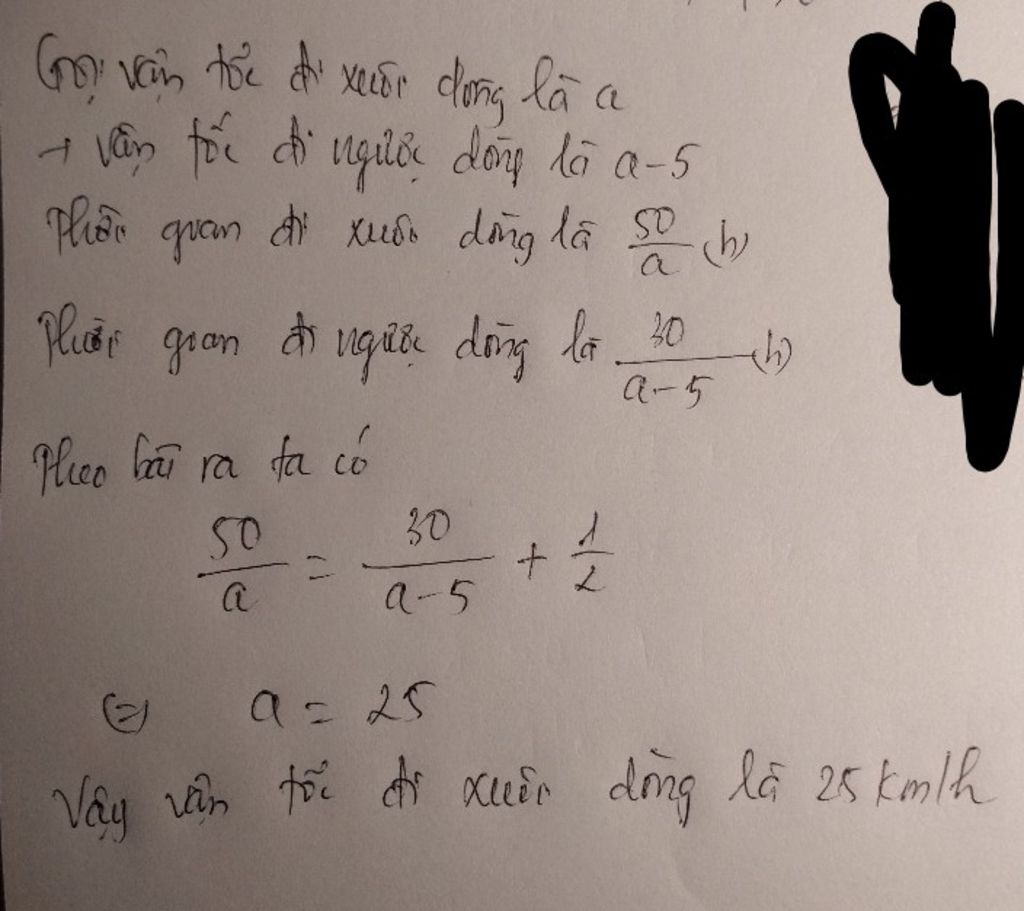 Gọi vận tốc đi xuôi dòng là a
→ vận tốc đi ngược dòng là a-5
Thời gian đi xuôi dòng là 50/a (h)
Thời gian đi ngược dòng là 30/(a-5) (h)
Theo bài ra ta có
50/a = 30/(a-5) + 1/2
⇔ a = 25
Vậy vận tốc đi xuôi dòng là 25 km/h